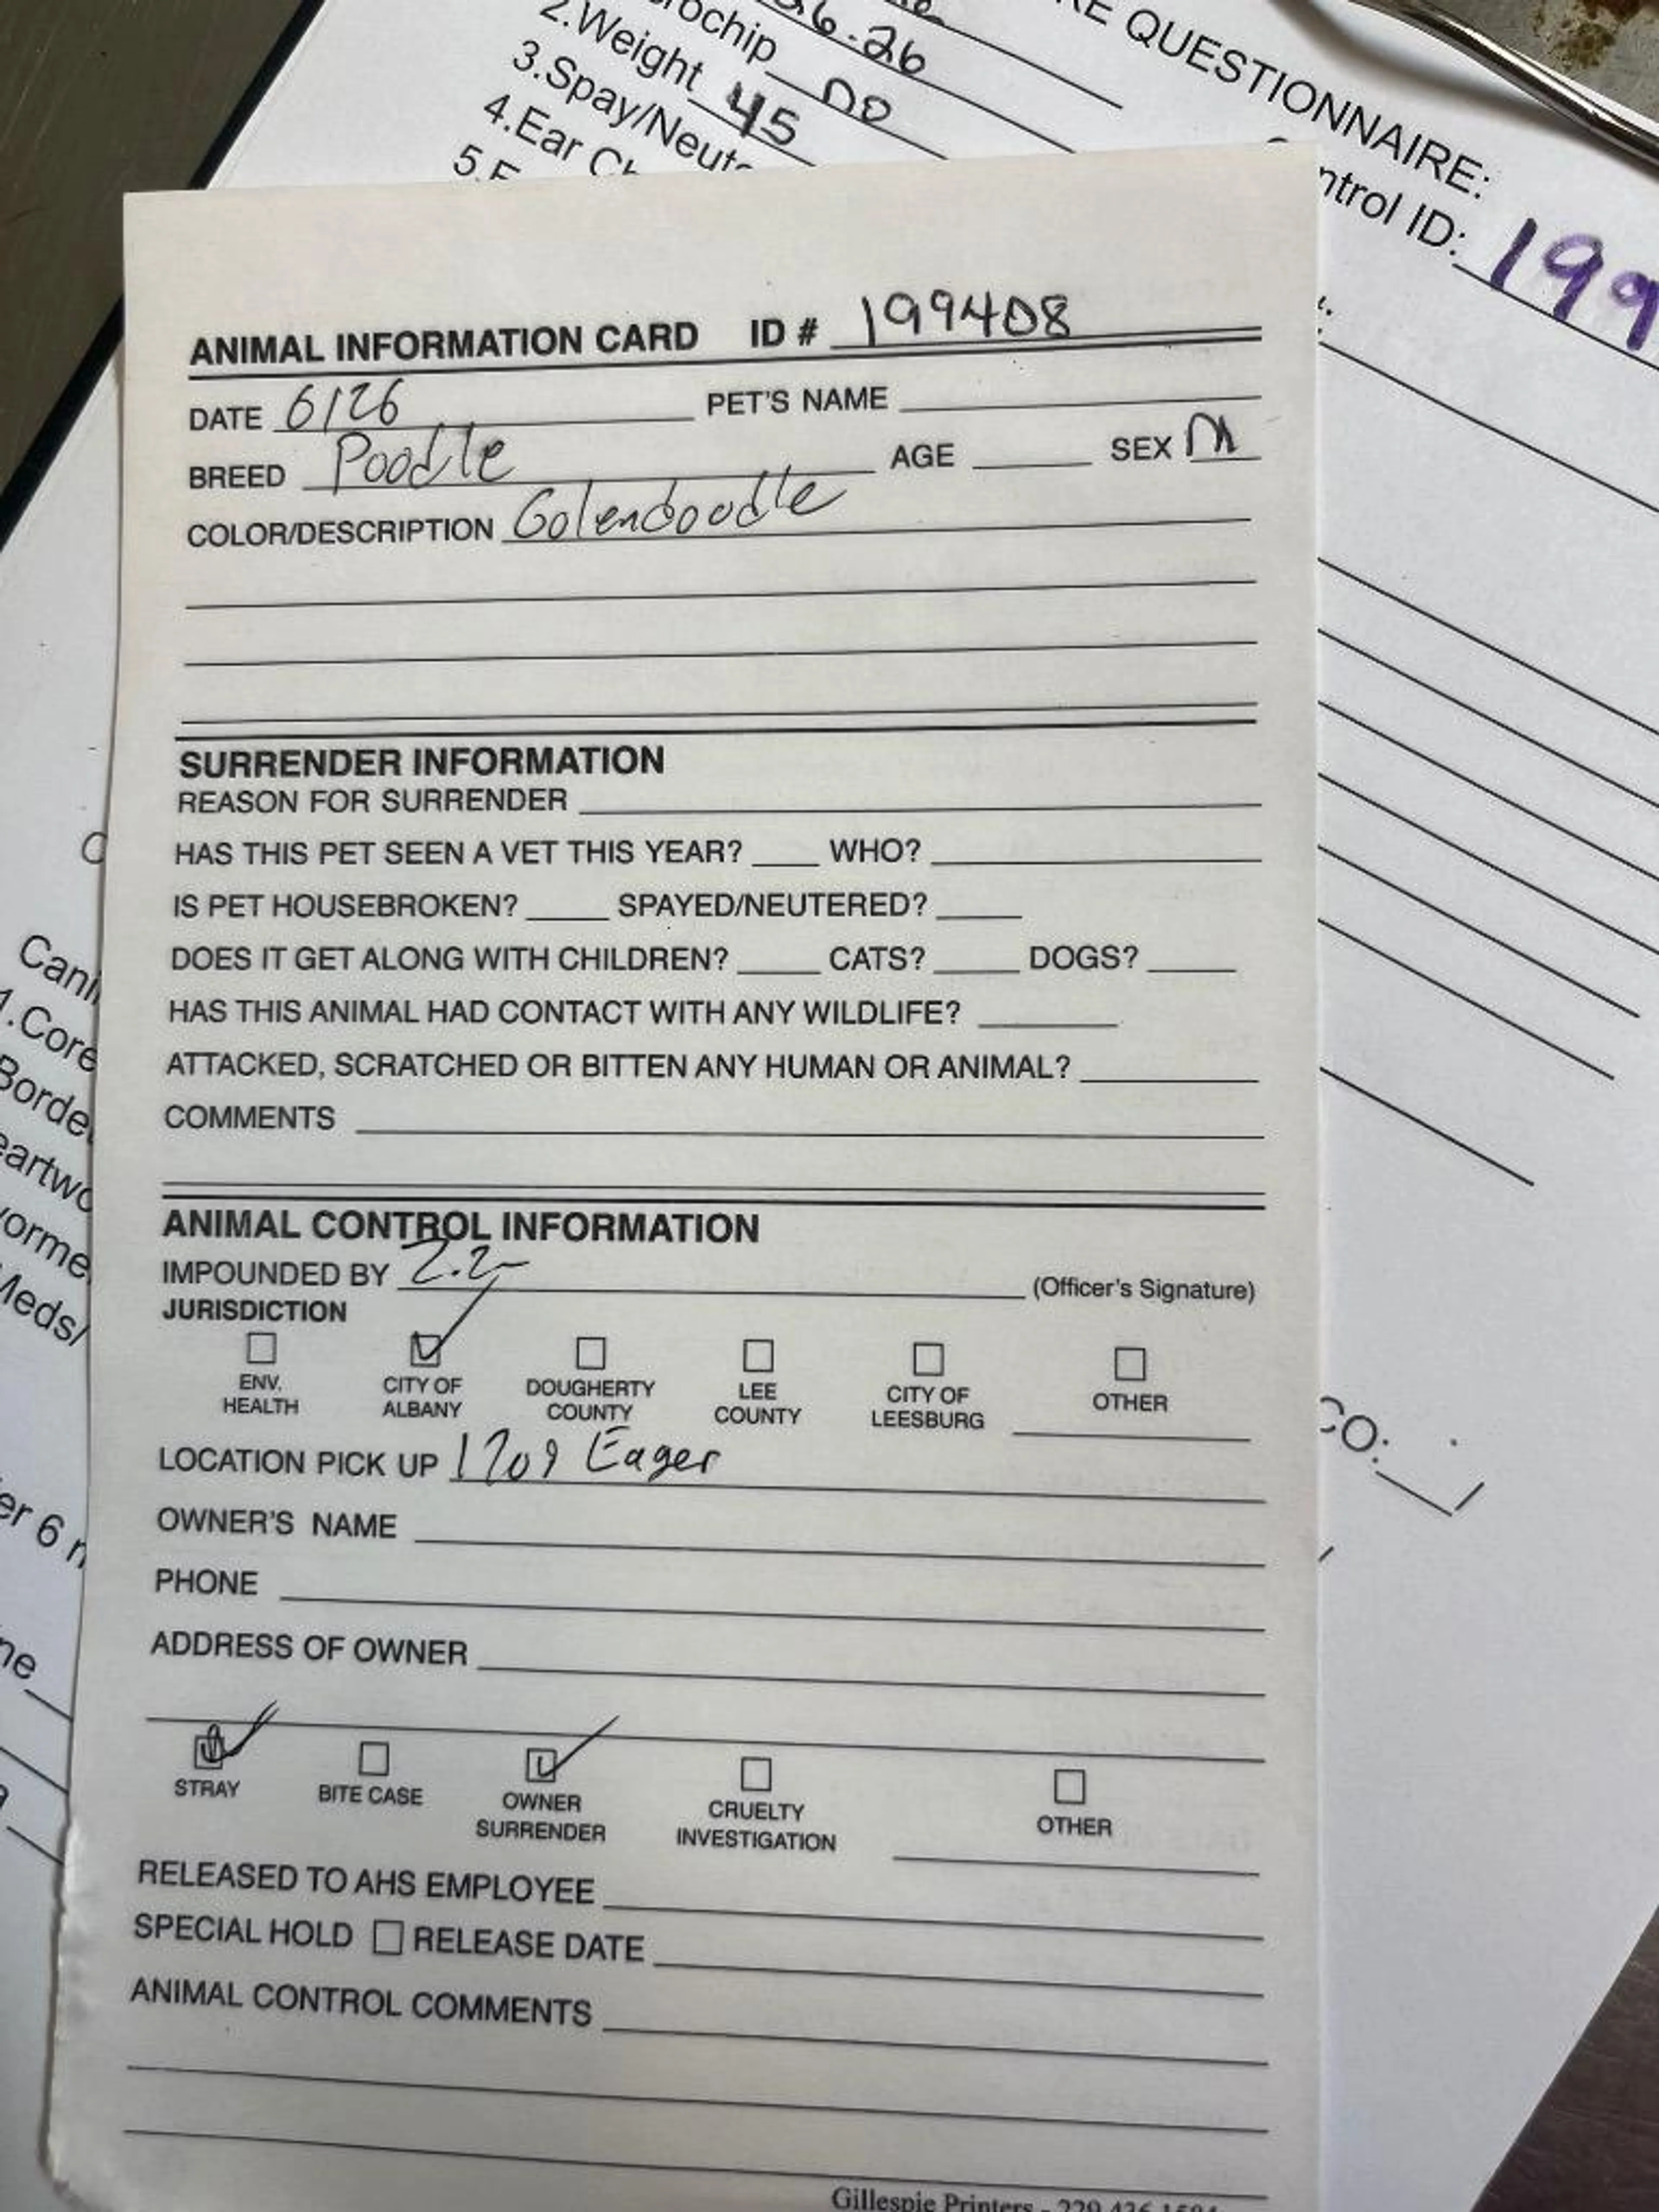 26-26
RE QUESTIONNAIRE:
rochip no
2.Weight 45
3.Spay/Neute
4.Ear Ch
5.
ntrol ID: 199
ANIMAL INFORMATION CARD ID # 199408
DATE 6/26 PET'S NAME
BREED Poodle AGE SEX M
COLOR/DESCRIPTION Golendoodle
SURRENDER INFORMATION
REASON FOR SURRENDER
HAS THIS PET SEEN A VET THIS YEAR? WHO?
IS PET HOUSEBROKEN? SPAYED/NEUTERED?
DOES IT GET ALONG WITH CHILDREN? CATS? DOGS?
HAS THIS ANIMAL HAD CONTACT WITH ANY WILDLIFE?
ATTACKED, SCRATCHED OR BITTEN ANY HUMAN OR ANIMAL?
COMMENTS
ANIMAL CONTROL INFORMATION
IMPOUNDED BY (Officer's Signature)
JURISDICTION
ENV. HEALTH
CITY OF ALBANY
DOUGHERTY COUNTY
LEE COUNTY
CITY OF LEESBURG
OTHER
LOCATION PICK UP 1709 Eager
OWNER'S NAME
PHONE
ADDRESS OF OWNER
STRAY
BITE CASE
OWNER SURRENDER
CRUELTY INVESTIGATION
OTHER
RELEASED TO AHS EMPLOYEE
SPECIAL HOLD RELEASE DATE
ANIMAL CONTROL COMMENTS
Gillespie Printers - 229
Cani
1.Core
Borde
eartwo
orme
Meds/
er 6 m
ne
CO: